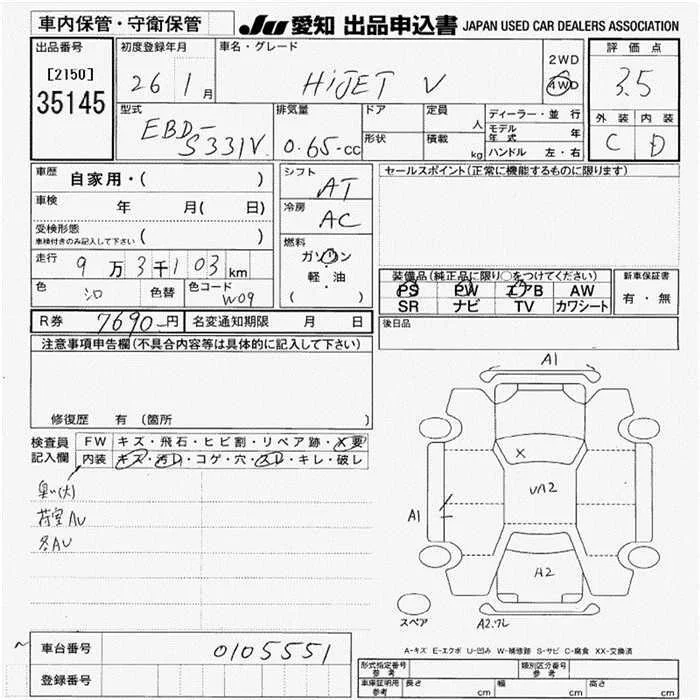 車内保管・守衛保管
JU 愛知 出品申込書 JAPAN USED CAR DEALERS ASSOCIATION
出品番号
[2150]
35145
初度登録年月
26 1月
車名・グレード
HiJET V
2WD
4WD
評価点
3.5
外装 内装
C D
型式
EBD-
S331V
排気量
0.65-cc
ドア
形状
定員
人
積載
kg
ディーラー・並行
モデル年式 年
ハンドル 左・右
車歴
自家用・( )
車検
年 月( 日)
受検形態
車検付きのみ記入して下さい ( )
走行
9万3千103km
色
シロ
色替
色コード
W09
シフト
AT
冷房
AC
燃料
ガソリン
軽・油
( )
セールスポイント(正常に機能するものに限ります)
装備品(純正品に限り○をつけてください)
PS PW エアB AW
SR ナビ TV カワシート
新車保証書
有・無
R券
7690-円
名変通知期限 月 日
後日品
注意事項申告欄(不具合内容等は具体的に記入して下さい)
修復歴 有 (箇所 )
検査員
記入欄
FW キズ・飛石・ヒビ割・リペア跡・X要
内装 キズ・汚レ・コゲ・穴・スレ・キレ・破レ
臭い(大)
荷室AU
各AU
A1
X
UA2
A1
A2
スペア
A2.ワレ
A-キズ E-エクボ U-凹み W-補修跡 S-サビ C-腐食 XX-交換済
車台番号
0105551
登録番号
形式指定番号
参考
類別区分番号
参考
車庫証明用
参考
長さ cm
幅 cm
高さ cm